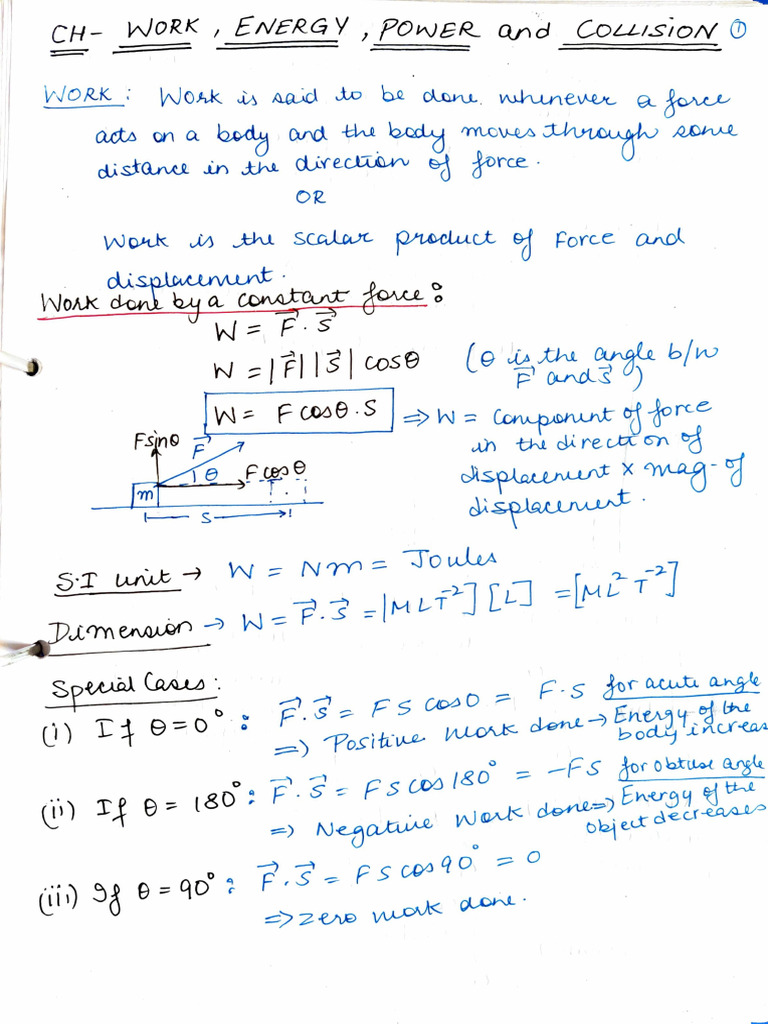 CH- WORK, ENERGY, POWER and COLLISION ①
WORK: Work is said to be done whenever a force
acts on a body and the body moves through some
distance in the direction of force.
OR
Work is the scalar product of Force and
displacement.
Work done by a constant force:
W = F⃗ . S⃗
W = |F⃗| |S⃗| cosθ (θ is the angle b/w
F⃗ and S⃗)
W = F cosθ . S ⇒ W = component of force
in the direction of
displacement × mag. of
displacement.
Fsinθ
F⃗
θ
F cosθ
m
S
S.I unit → W = Nm = Joules
Dimension → W = F⃗ . S⃗ = [MLT⁻²] [L] = [ML²T⁻²]
Special Cases:
(i) If θ = 0° : F⃗ . S⃗ = FS cos0 = F.S for acute angle
⇒ Positive work done → Energy of the
body increas
(ii) If θ = 180° : F⃗ . S⃗ = FS cos 180° = -FS for obtuse angle
⇒ Negative work done ⇒ Energy of the
object decreases
(iii) If θ = 90° : F⃗ . S⃗ = FS cos 90° = 0
⇒ zero work done.